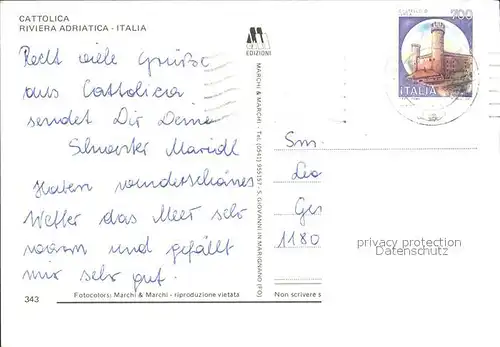 CATTOLICA
RIVIERA ADRIATICA - ITALIA
Recht viele Grüße
aus Cattolicia
sendet Dir Deine
Schwester Maridl
Haben wunderschönes
Wetter das Meer sehr
warm und gefällt
mir sehr gut.
343
Fotocolors: Marchi & Marchi - riproduzione vietata
EDIZIONI
MARCHI & MARCHI - Tel. (0541) 955157 - S. GIOVANNI IN MARIGNANO (FO)
700
ITALIA
Leo
Ger
1180
privacy protection
Datenschutz
Non scrivere s